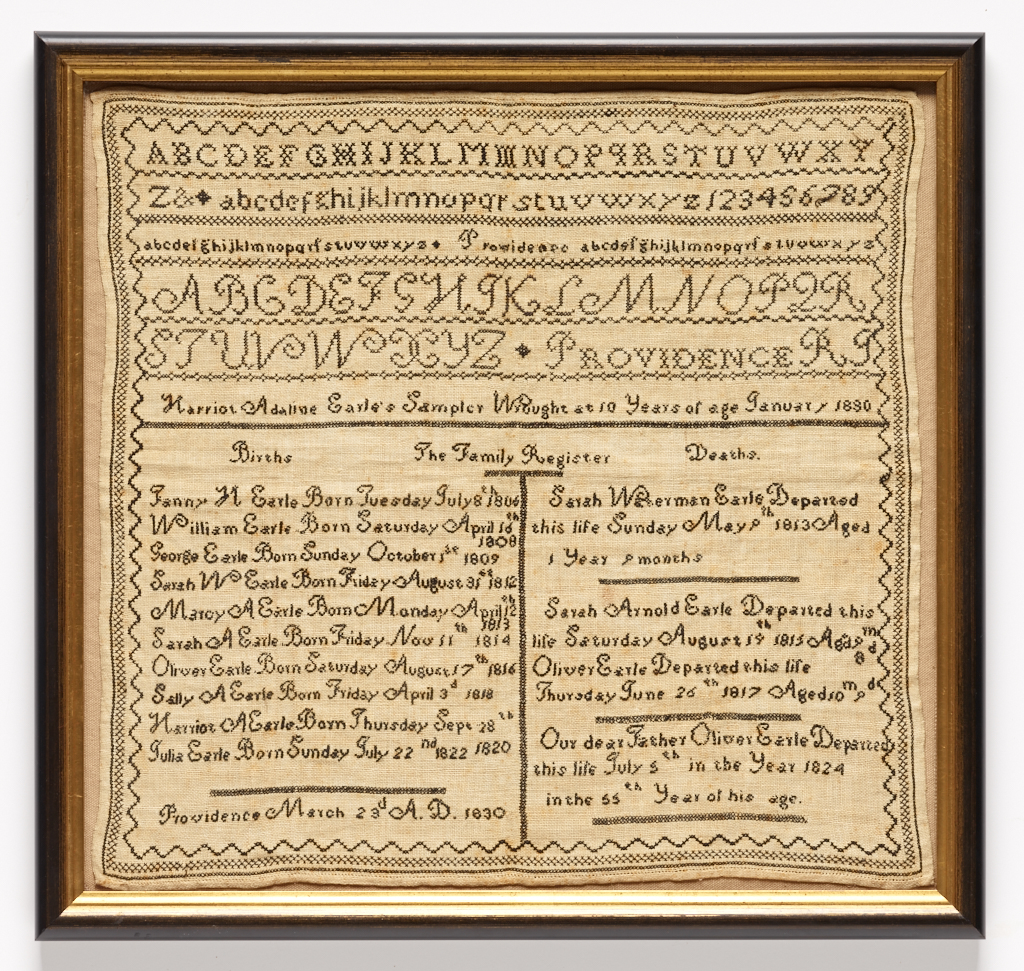 ABCDEFGHIJKLMNOPQRSTUVWXY
Z& abcdefghijklmnopqrstuvwxyz 123456789
abcdefghijklmnopqrsstuvwxyz Providence abcdefghijklmnopqrsstuvwxyz
ABCDEFGHIJKLMNOPQR
STUVWXYZ PROVIDENCE R I
Harriot Adaline Earle's Sampler Wrought at 10 Years of age January 1830
The Family Register
Births
Fanny H Earle Born Tuesday July 8th 1806
William Earle Born Saturday April 16th 1808
George Earle Born Sunday October 1st 1809
Sarah W Earle Born Friday August 31st 1812
Marcy A Earle Born Monday April 12th 1813
Sarah A Earle Born Friday Nov 11th 1814
Oliver Earle Born Saturday August 17th 1816
Sally A Earle Born Friday April 3d 1818
Harriot A Earle Born Thursday Sept 28th 1820
Julia Earle Born Sunday July 22nd 1822
Providence March 23d A.D. 1830
Deaths.
Sarah Waterman Earle Departed
this life Sunday May 9th 1813 Aged
1 Year 9 months
Sarah Arnold Earle Departed this
life Saturday August 19th 1815 Aged 9m 8d
Oliver Earle Departed this life
Thursday June 26th 1817 Aged 10m 9d
Our dear Father Oliver Earle Departed
this life July 5th in the Year 1824
in the 55th Year of his age.